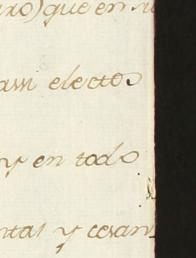 uro) que en su
assi electos
y en todo
ntas y cesan